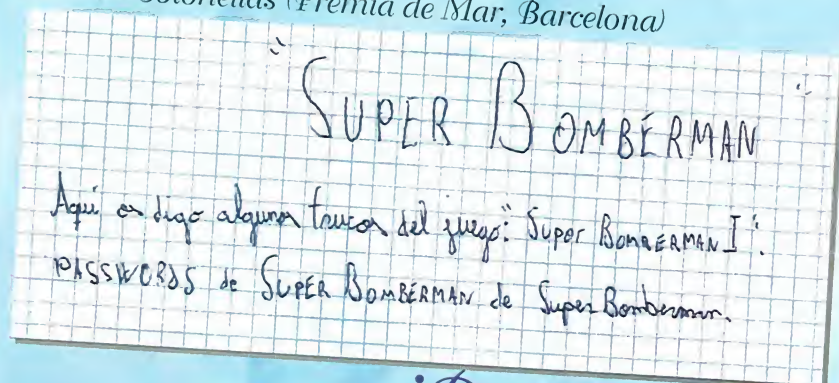 (Premià de Mar, Barcelona)
"SUPER BOMBERMAN"
Aquí os digo algunos trucos del juego: "Super BOMBERMAN I".
PASSWORDS de SUPER BOMBERMAN de Super Bomberman.